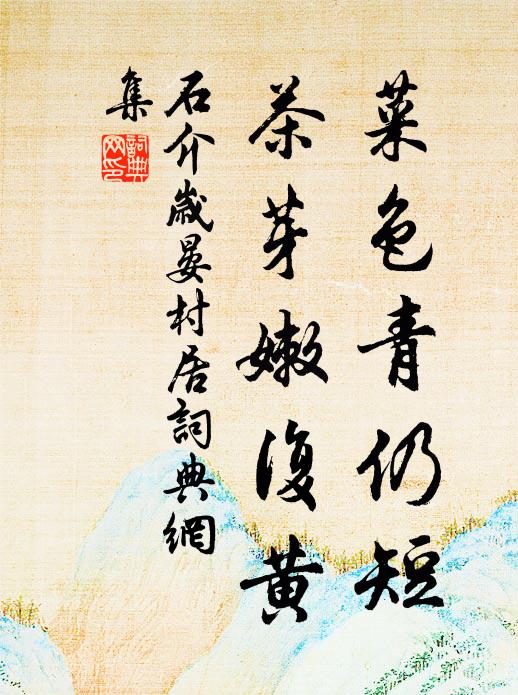 菜色青仍短
茶芽嫩復黄
石介歲晏村居詞典網
集
詞典
网印